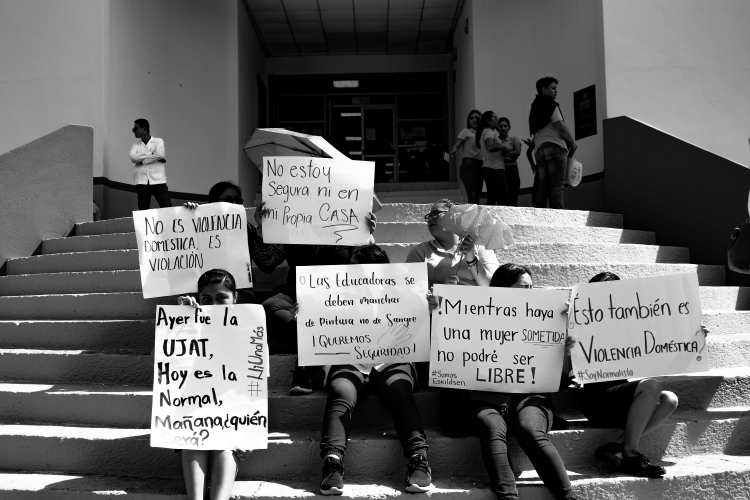 No estoy
Segura ni en
mi Propia CASA
NO ES VIOLENCIA
DOMÉSTICA, ES
VIOLACIÓN
¡Las Educadoras se
deben manchar
de Pintura no de Sangre
¡QUEREMOS
SEGURIDAD!
¡Mientras haya
una mujer SOMETIDA
no podré ser
LIBRE!
#Somos
Eskildsen
Ésto también es
VIOLENCIA DOMÉSTICA!
#SoyNormalista
Ayer fue la
UJAT,
Hoy es la
Normal,
Mañana ¿quién
será?
#NiUnaMás